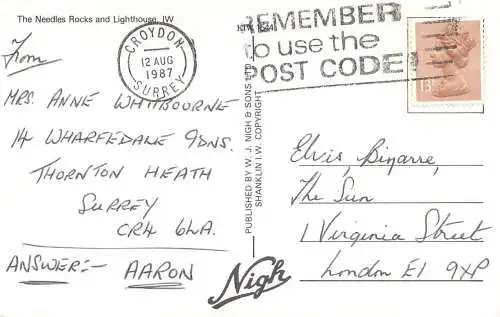 The Needles Rocks and Lighthouse, IW
From
MRS. ANNE WHITBOURNE
14 WHARFEDALE GDNS.
THORNTON HEATH
SURREY
CR4 6LA.
ANSWER:- AARON
CROYDON
12 AUG
1987
SURREY
REMEMBER
to use the
POST CODE
13
PUBLISHED BY W. J. NIGH & SONS LTD
SHANKLIN I.W. COPYRIGHT
Nigh
Elvis, Bizarre,
The Sun
1 Virginia Street
London E1 9XP